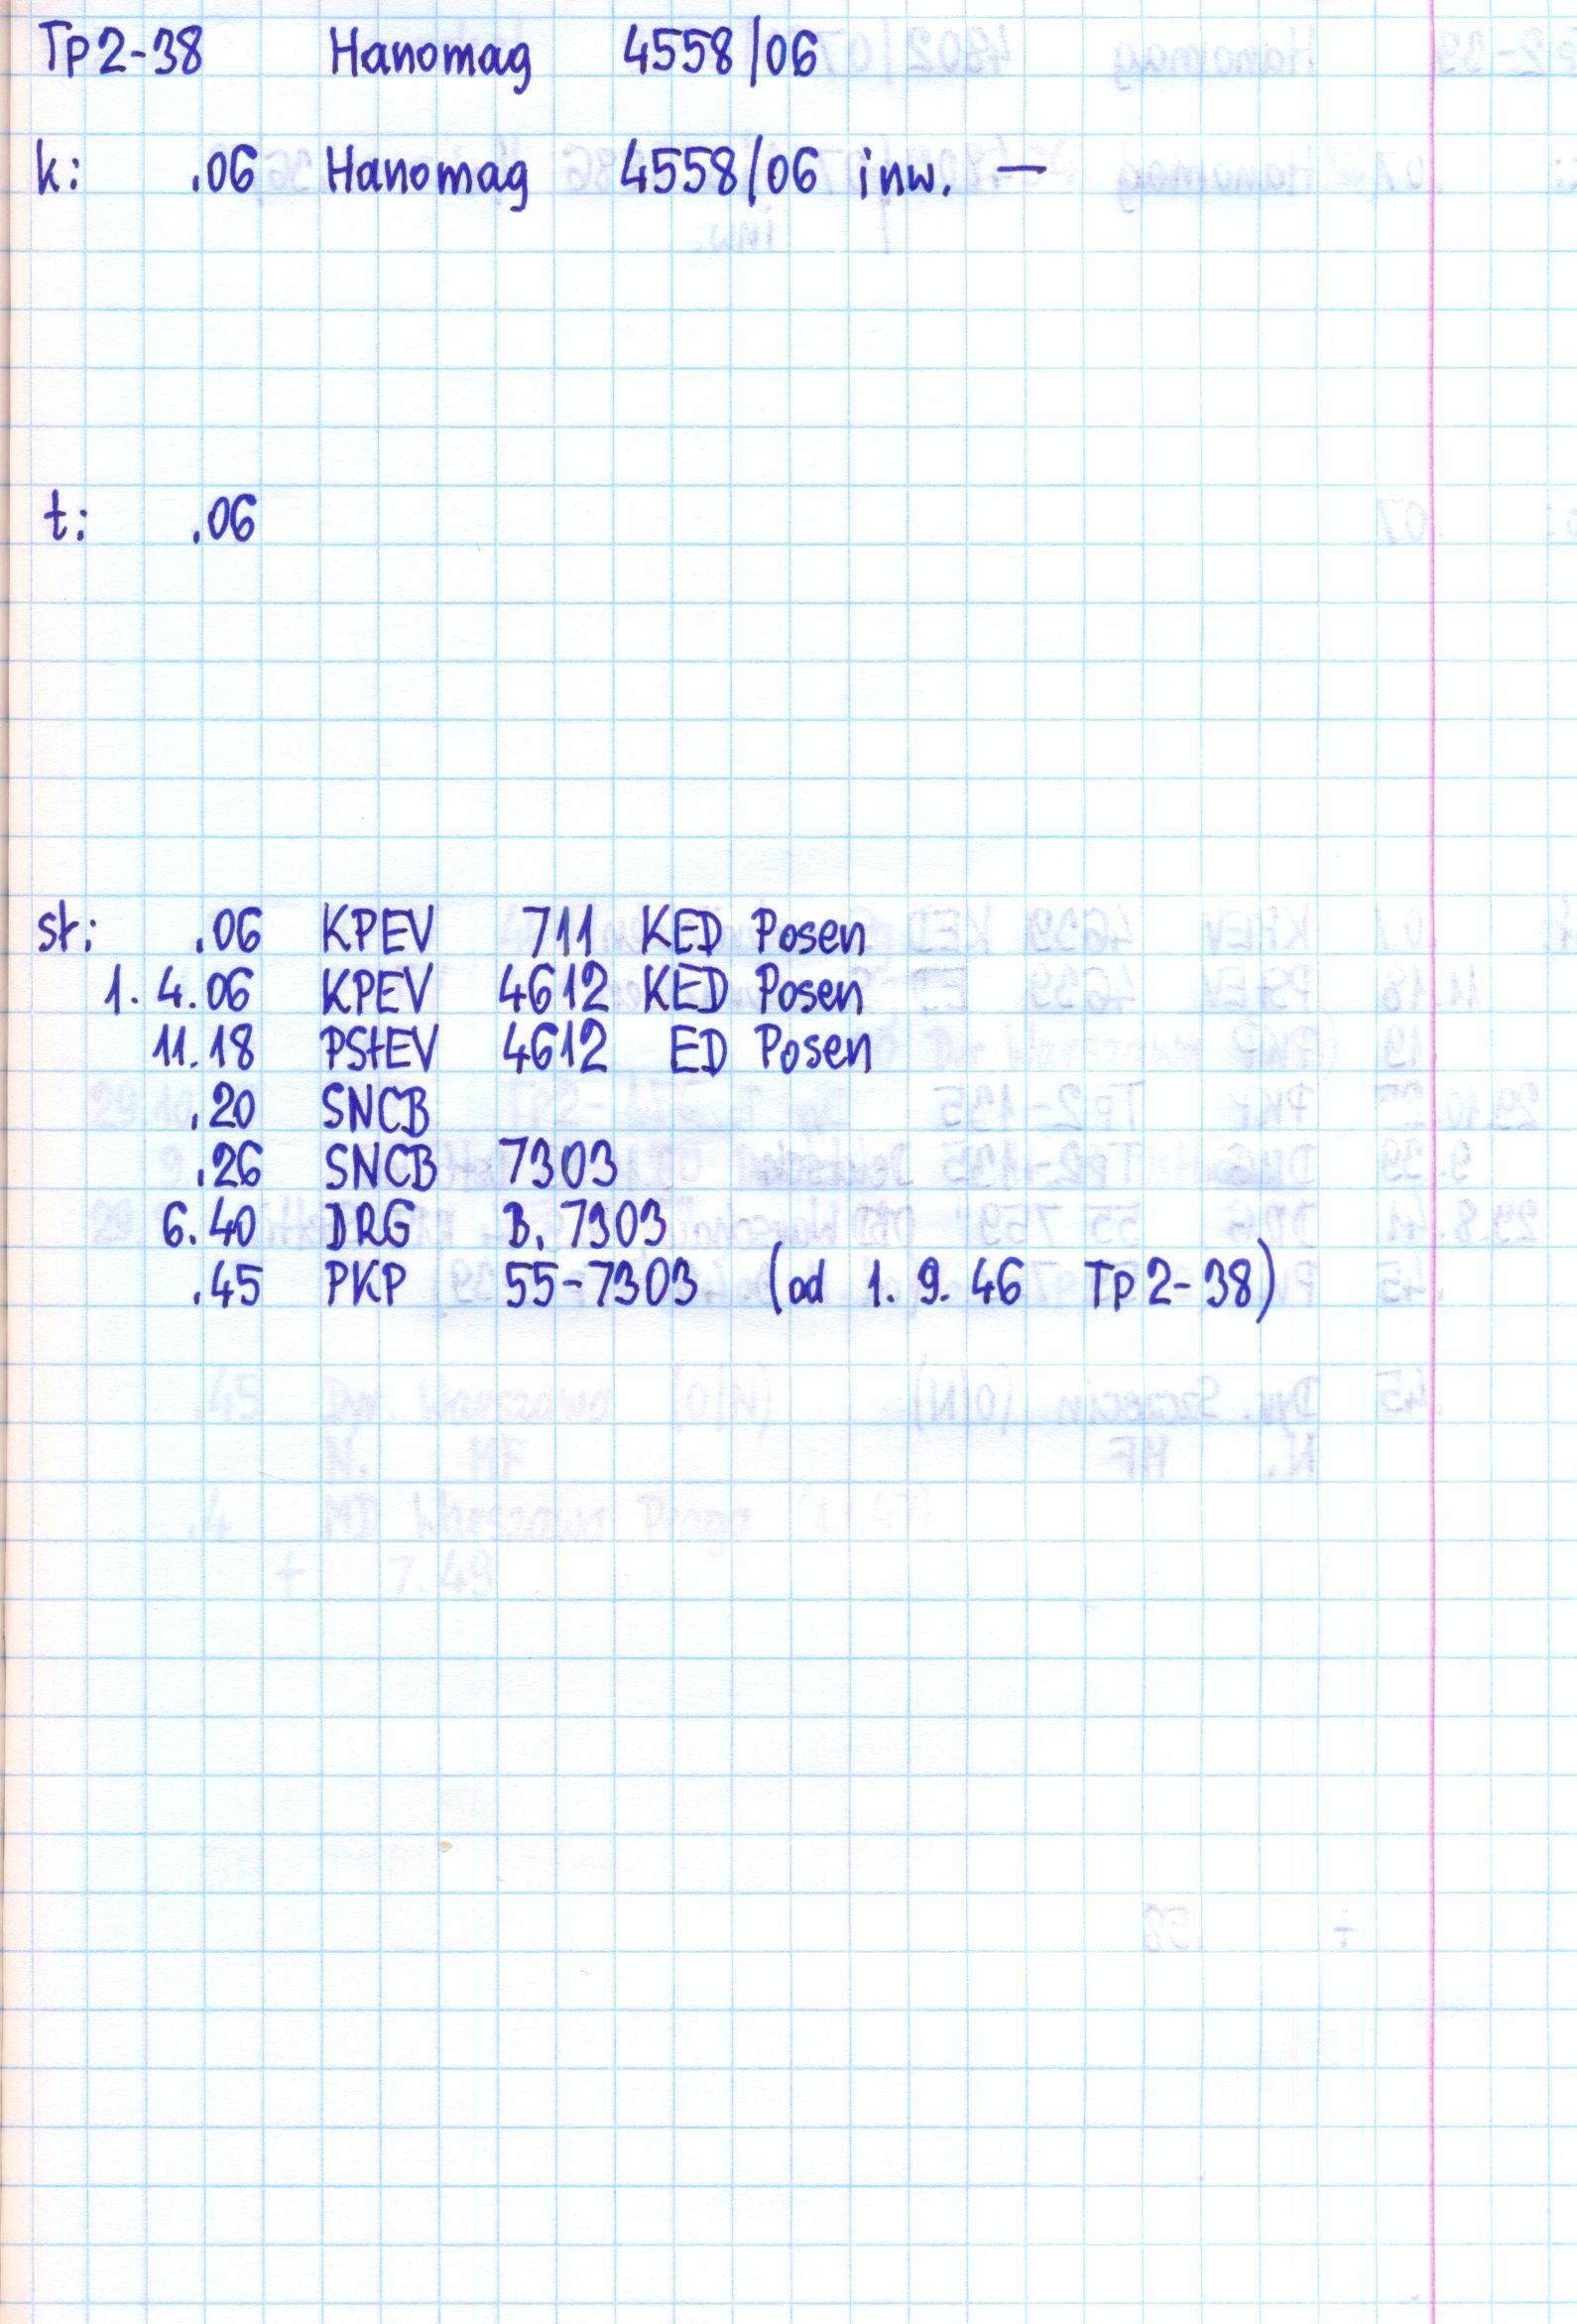 Tp2-38 Hanomag 4558/06
k: .06 Hanomag 4558/06 inw. —
t: .06
st: .06 KPEV 711 KED Posen
1.4.06 KPEV 4612 KED Posen
11.18 PStEV 4612 ED Posen
.20 SNCB
.26 SNCB 7303
6.40 DRG B. 7303
.45 PKP 55-7303 (od 1.9.46 Tp2-38)